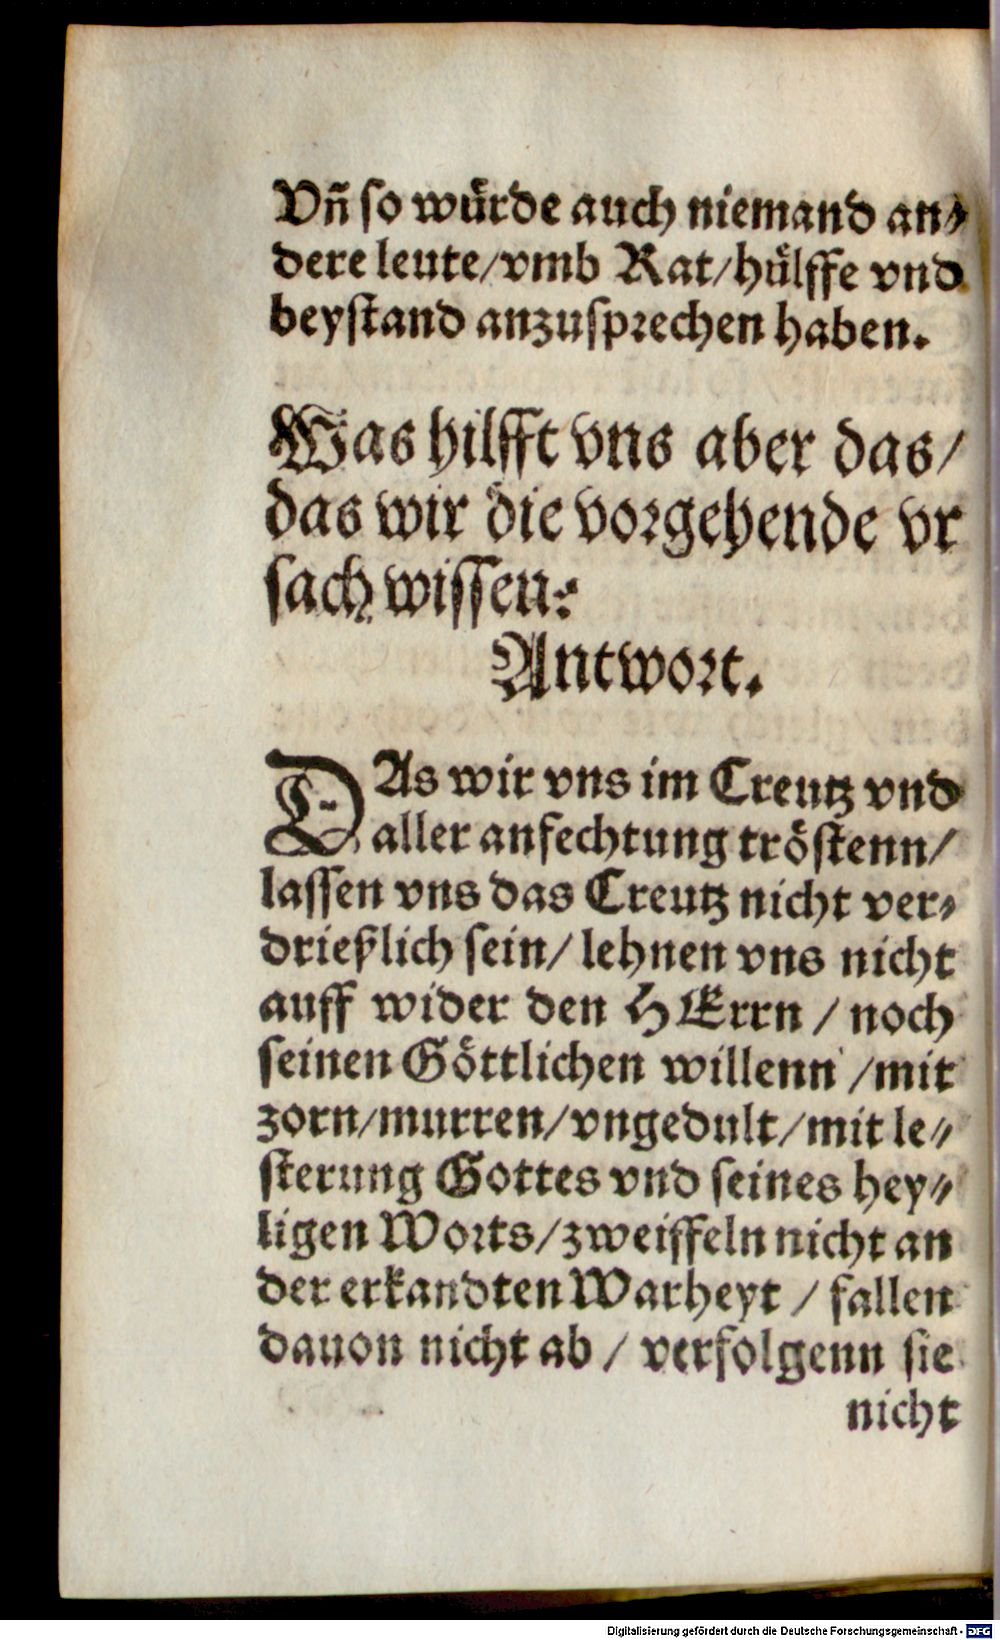 Vñ so würde auch niemand an⸗
dere leute/vmb Rat/hülffe vnd
beystand anzusprechen haben.
Was hilfft vns aber das/
das wir die vorgehende vr
sach wissen:
Antwort.
DAs wir vns im Creutz vnd
aller anfechtung tröstenn/
lassen vns das Creutz nicht ver⸗
drießlich sein/ lehnen vns nicht
auff wider den HErrn / noch
seinen Göttlichen willenn /mit
zorn/murren/vngedult/mit le⸗
sterung Gottes vnd seines hey⸗
ligen Worts/zweiffeln nicht an
der erkandten Warheyt / fallen
dauon nicht ab / verfolgenn sie
nicht
Digitalisierung gefördert durch die Deutsche Forschungsgemeinschaft - DFG